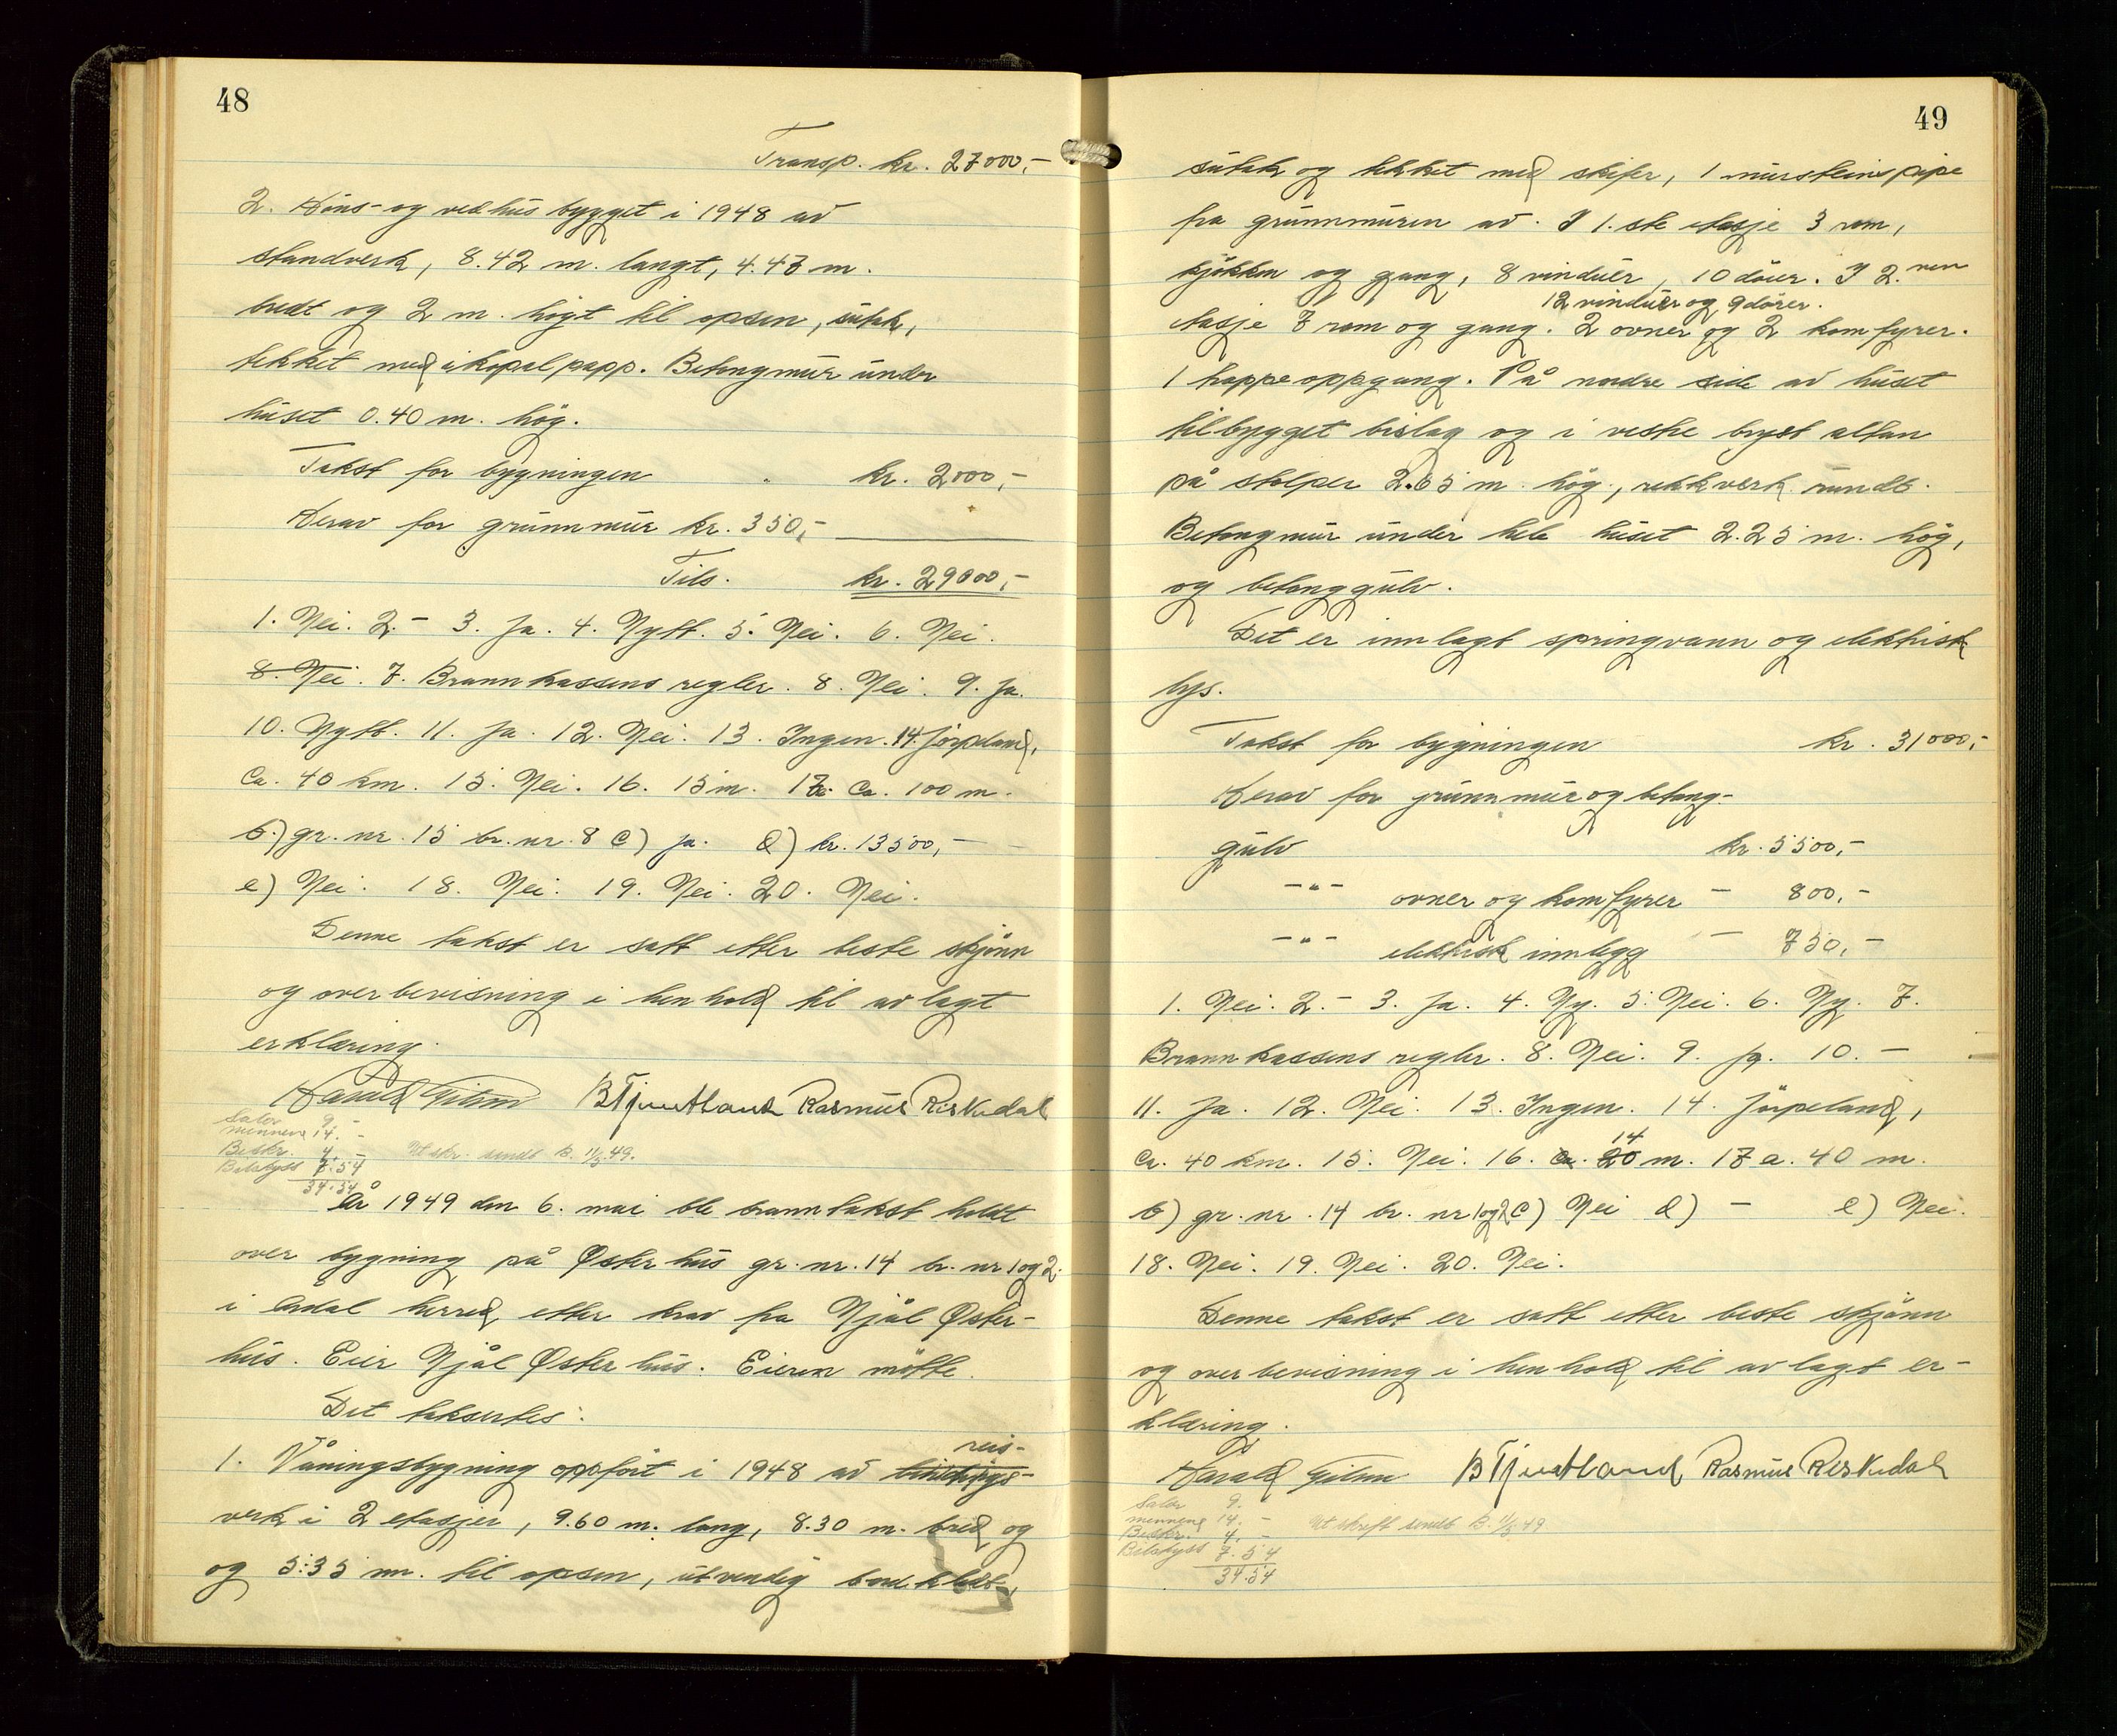 48
Transp. kr. 27000,-
2. Høns- og vedhus bygget i 1948 av
standverk, 8.42 m. langt, 4.43 m.
bredt og 2 m. højt til opsen, sutak,
tekket med ikopalpapp. Betongmur under
huset 0.40 m. høg.
Takst for bygningen kr. 2000,-
Herav for grunnmur kr. 350,-
Tils. kr. 29000,-
1. Nei. 2.- 3. Ja. 4. Nytt. 5. Nei. 6. Nei.
8. Nei. 7. Brannkassens regler. 8. Nei. 9. Ja.
10. Nytt. 11. Ja. 12. Nei. 13. Ingen. 14. Jørpeland,
Ca. 40 km. 15. Nei. 16. 15 m. 17a. Ca. 100 m.
b.) gr. nr. 15 br. nr. 8 c) Ja. d) kr. 13500,-
e) Nei. 18. Nei. 19. Nei. 20. Nei.
Denne takst er satt etter beste skjønn
og overbevisning i henhold til avlagt
erklæring.
Harald B Tjentland Rasmus Reskedal
Salær 9.-
mennene 14.-
Beskr. 4.- Utskr. sendt B. 11/5.49.
Bilskyss 7.54
34.54
År 1949 den 6. mai ble branntakst holdt
over bygning på Østerhus gr. nr. 14 br. nr 1 og 2.
i Årdal herred etter krav fra Njål Øster-
hus. Eier Njål Østerhus. Eieren møtte.
Det taksertes:
reis-
1. Våningsbygning oppført i 1948 av
verk i 2 etasjer, 9.60 m. lang, 8.30 m. bred og
og 5.35 m. til opsen, utvendig bordkledt,
49
sutak og tekket med skifer, 1 mursteinspipe
fra grunnmuren av. I 1.ste etasje 3 rom,
kjøkken og gang, 8 vinduer, 10 dører. I 2.nen
12 vinduer og 9 dører.
etasje 7 rom og gang. 2 ovner og 2 komfyrer.
1 trappeoppgang. På nordre side av huset
tilbygget bislag og i vestre bryst altan
på stolper 2.65 m. høg, rekkverk rundt.
Betongmur under hele huset 2.25 m. høg,
og betonggulv.
Det er innlagt springvann og elektrisk
lys.
Takst for bygningen kr. 31000,-
Herav for grunnmur og betong-
gulv kr. 5500,-
-"- ovner og komfyrer - 800,-
-"- elektrisk innlegg - 750,-
1. Nei. 2.- 3. Ja. 4. Ny. 5. Nei. 6. Ny. 7.
Brannkassens regler. 8. Nei. 9. Ja. 10.-
11. Ja. 12. Nei. 13. Ingen. 14. Jørpeland,
14
Ca. 40 km. 15. Nei. 16. Ca. 20 m. 17 a. 40 m.
b) gr. nr. 14 br. nr 1 og 2 c) Nei d) - e) Nei.
18. Nei. 19. Nei. 20. Nei.
Denne takst er satt etter beste skjønn
og overbevisning i henhold til avlagt er-
klæring.
Harald B Tjentland Rasmus Reskedal
Salær 9.
mennene 14.-
Beskr. 4.- Utskrift sendt B. 11/5 49
Bilskyss 7.54
34.54